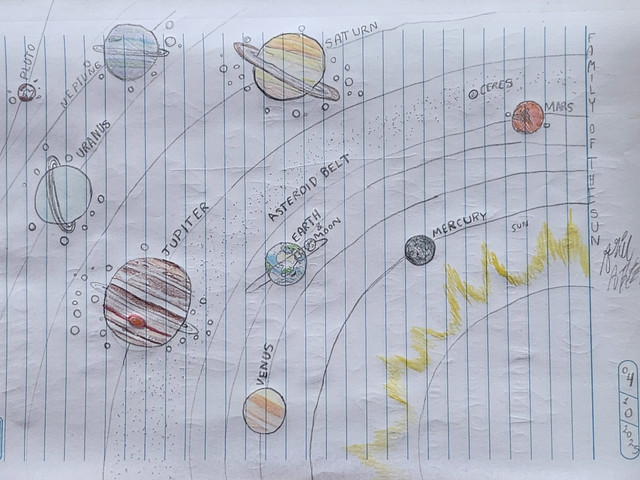 PLUTO
NEPTUNE
SATURN
URANUS
CERES
MARS
ASTEROID BELT
JUPITER
EARTH
&
MOON
MERCURY
SUN
VENUS
FAMILY OF THE SUN
04
10
2025